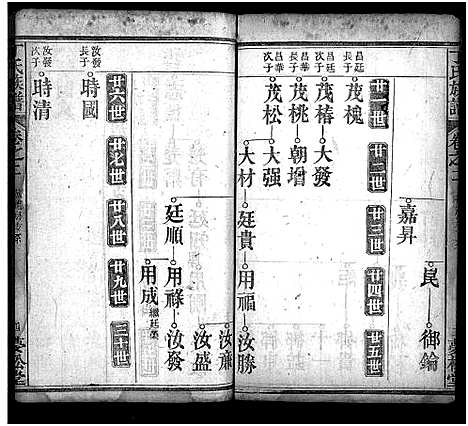 氏族譜
廿一世
廿二世
廿三世
廿四世
廿五世
嘉昇
昆
御鑰
昌廷子
茂槐
昌華長子
茂椿
大發
茂桃
朝增
昌華次子
茂松
大强
大材
廷貴
用福
汝勝
汝廉
汝盛
廷順
用祿
汝發
用成
繼廷榮
廿六世
廿七世
廿八世
廿九世
三十世
汝發長子
時國
汝發次子
時清
氏族譜